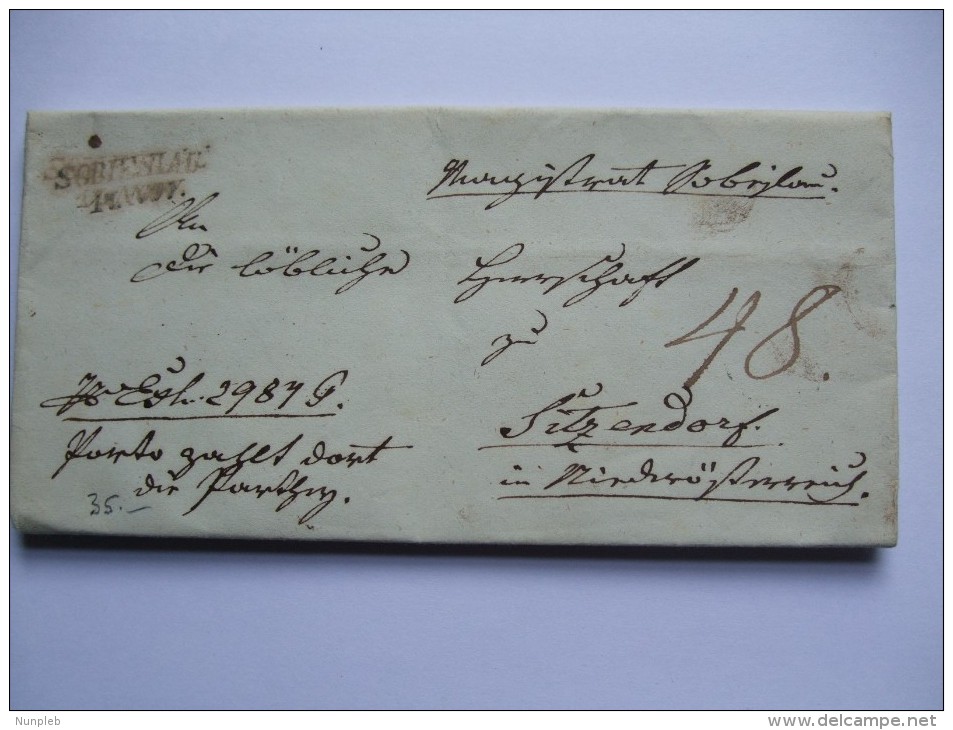 SOBIESLAU
14. NOV.
Magistrat Sobieslau.
An
die löbliche Herrschaft
zu
48.
Ps Exh. 2987 G.
Sitzendorf.
Porto zahlt dort
in Niederösterreich.
die Parthey.
35.—
Nunpleb
www.delcampe.net